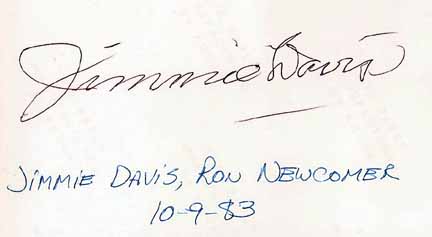 Jimmie Davis
Jimmie Davis, Ron Newcomer
10-9-83